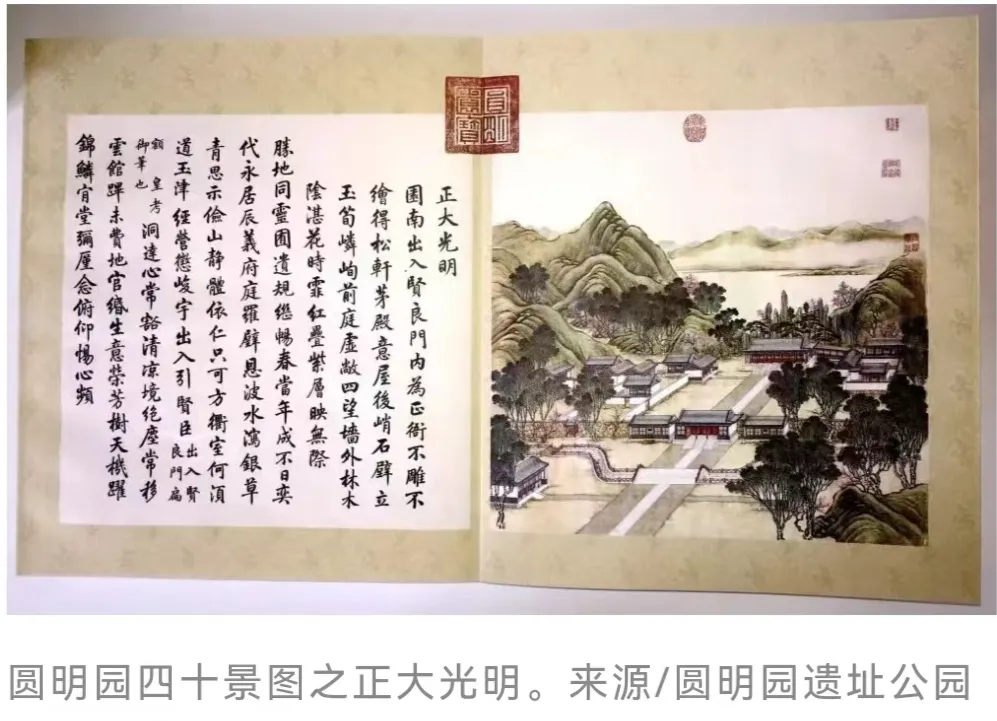 正大光明
園南出入賢良門內為正衙不雕不
繪得松軒茅殿意屋後峭石壁立
玉筍嶙峋前庭虛敞四望墻外林木
陰湛花時霏紅疊紫層映無際
勝地同靈囿遺規繼暢春當年成不日奕
代永居辰義府庭羅壁恩波水瀉銀草
青思示儉山靜體依仁只可方衢室何須
道玉津經營懲峻宇出入引賢臣出入賢良門扁
額皇考御筆也洞達心常豁清涼境絕塵常移
雲館蹕未費地官緡生意榮芳樹天機躍
錦鱗肎堂彌厪念俯仰惕心頻
圆明园四十景图之正大光明。来源/圆明园遗址公园